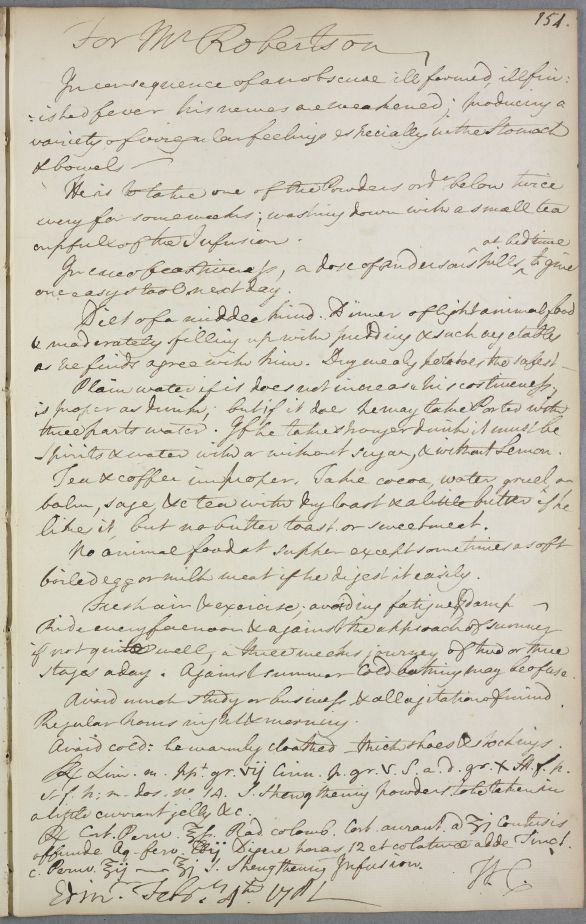 151.
For Mr Robertson
In consequence of an obscure ill formed, ill fin:
:ished fever his nerves are weakened; producing a
variety of irregular feelings especially in the Stomach
& bowels —
He is to take one of the Powders ordd below twice
every for some weeks; washing down with a small tea
cupful of the Infusion.
In case of costiveness, a dose of Andersons Pills at bedtime to give
one easy stool next day.
Diet of a middle kind. Dinner of light animal food
& moderately filling up with pudding & such vegetables
as he finds agree with him. Dry mealy potatoes the safest —
Plain water if it does not increase his costiveness,
is proper as drink; but if it does he may take Porter with
three parts water. If he take stronger drink it must be
Spirits & water with or without sugar, & without Lemon.
Tea & coffee improper. Take cocoa, water gruel, or
balm, sage, &c tea with dry toast & a little butter if he
like it, but no butter toast or sweetmeat.
No animal food at supper except sometimes a soft
boiled egg or milk meat if he digest it easily.
Fresh air & exercise; avoiding fatigue & damp
Ride every forenoon & against the approach of summer
if not quite well, a three weeks journey of two or three
stages a day. Against summer Cold bathing may be of use.
Avoid much study or business & all agitation of mind.
Regular hours night & morning.
Avoid cold: be warmly cloathed thick shoes & stockings.
Rx Lim. m. ppt. gr. vij Cinn. p. gr. v. S. a. d. gr. x M. f. p.
dos. no 14. S. Strengthening powders to be taken in
a little currant jelly &c.
Rx Cort. Peruv. Rad colomb. Cort. aurant. a ʒij Contusis
affunde Aq. ferv. Digere horas 12 et colaturae adde Tinct.
c. Peruv. ʒij S. Strengthening Infusion.
Edinr. Febry 4th
W C.